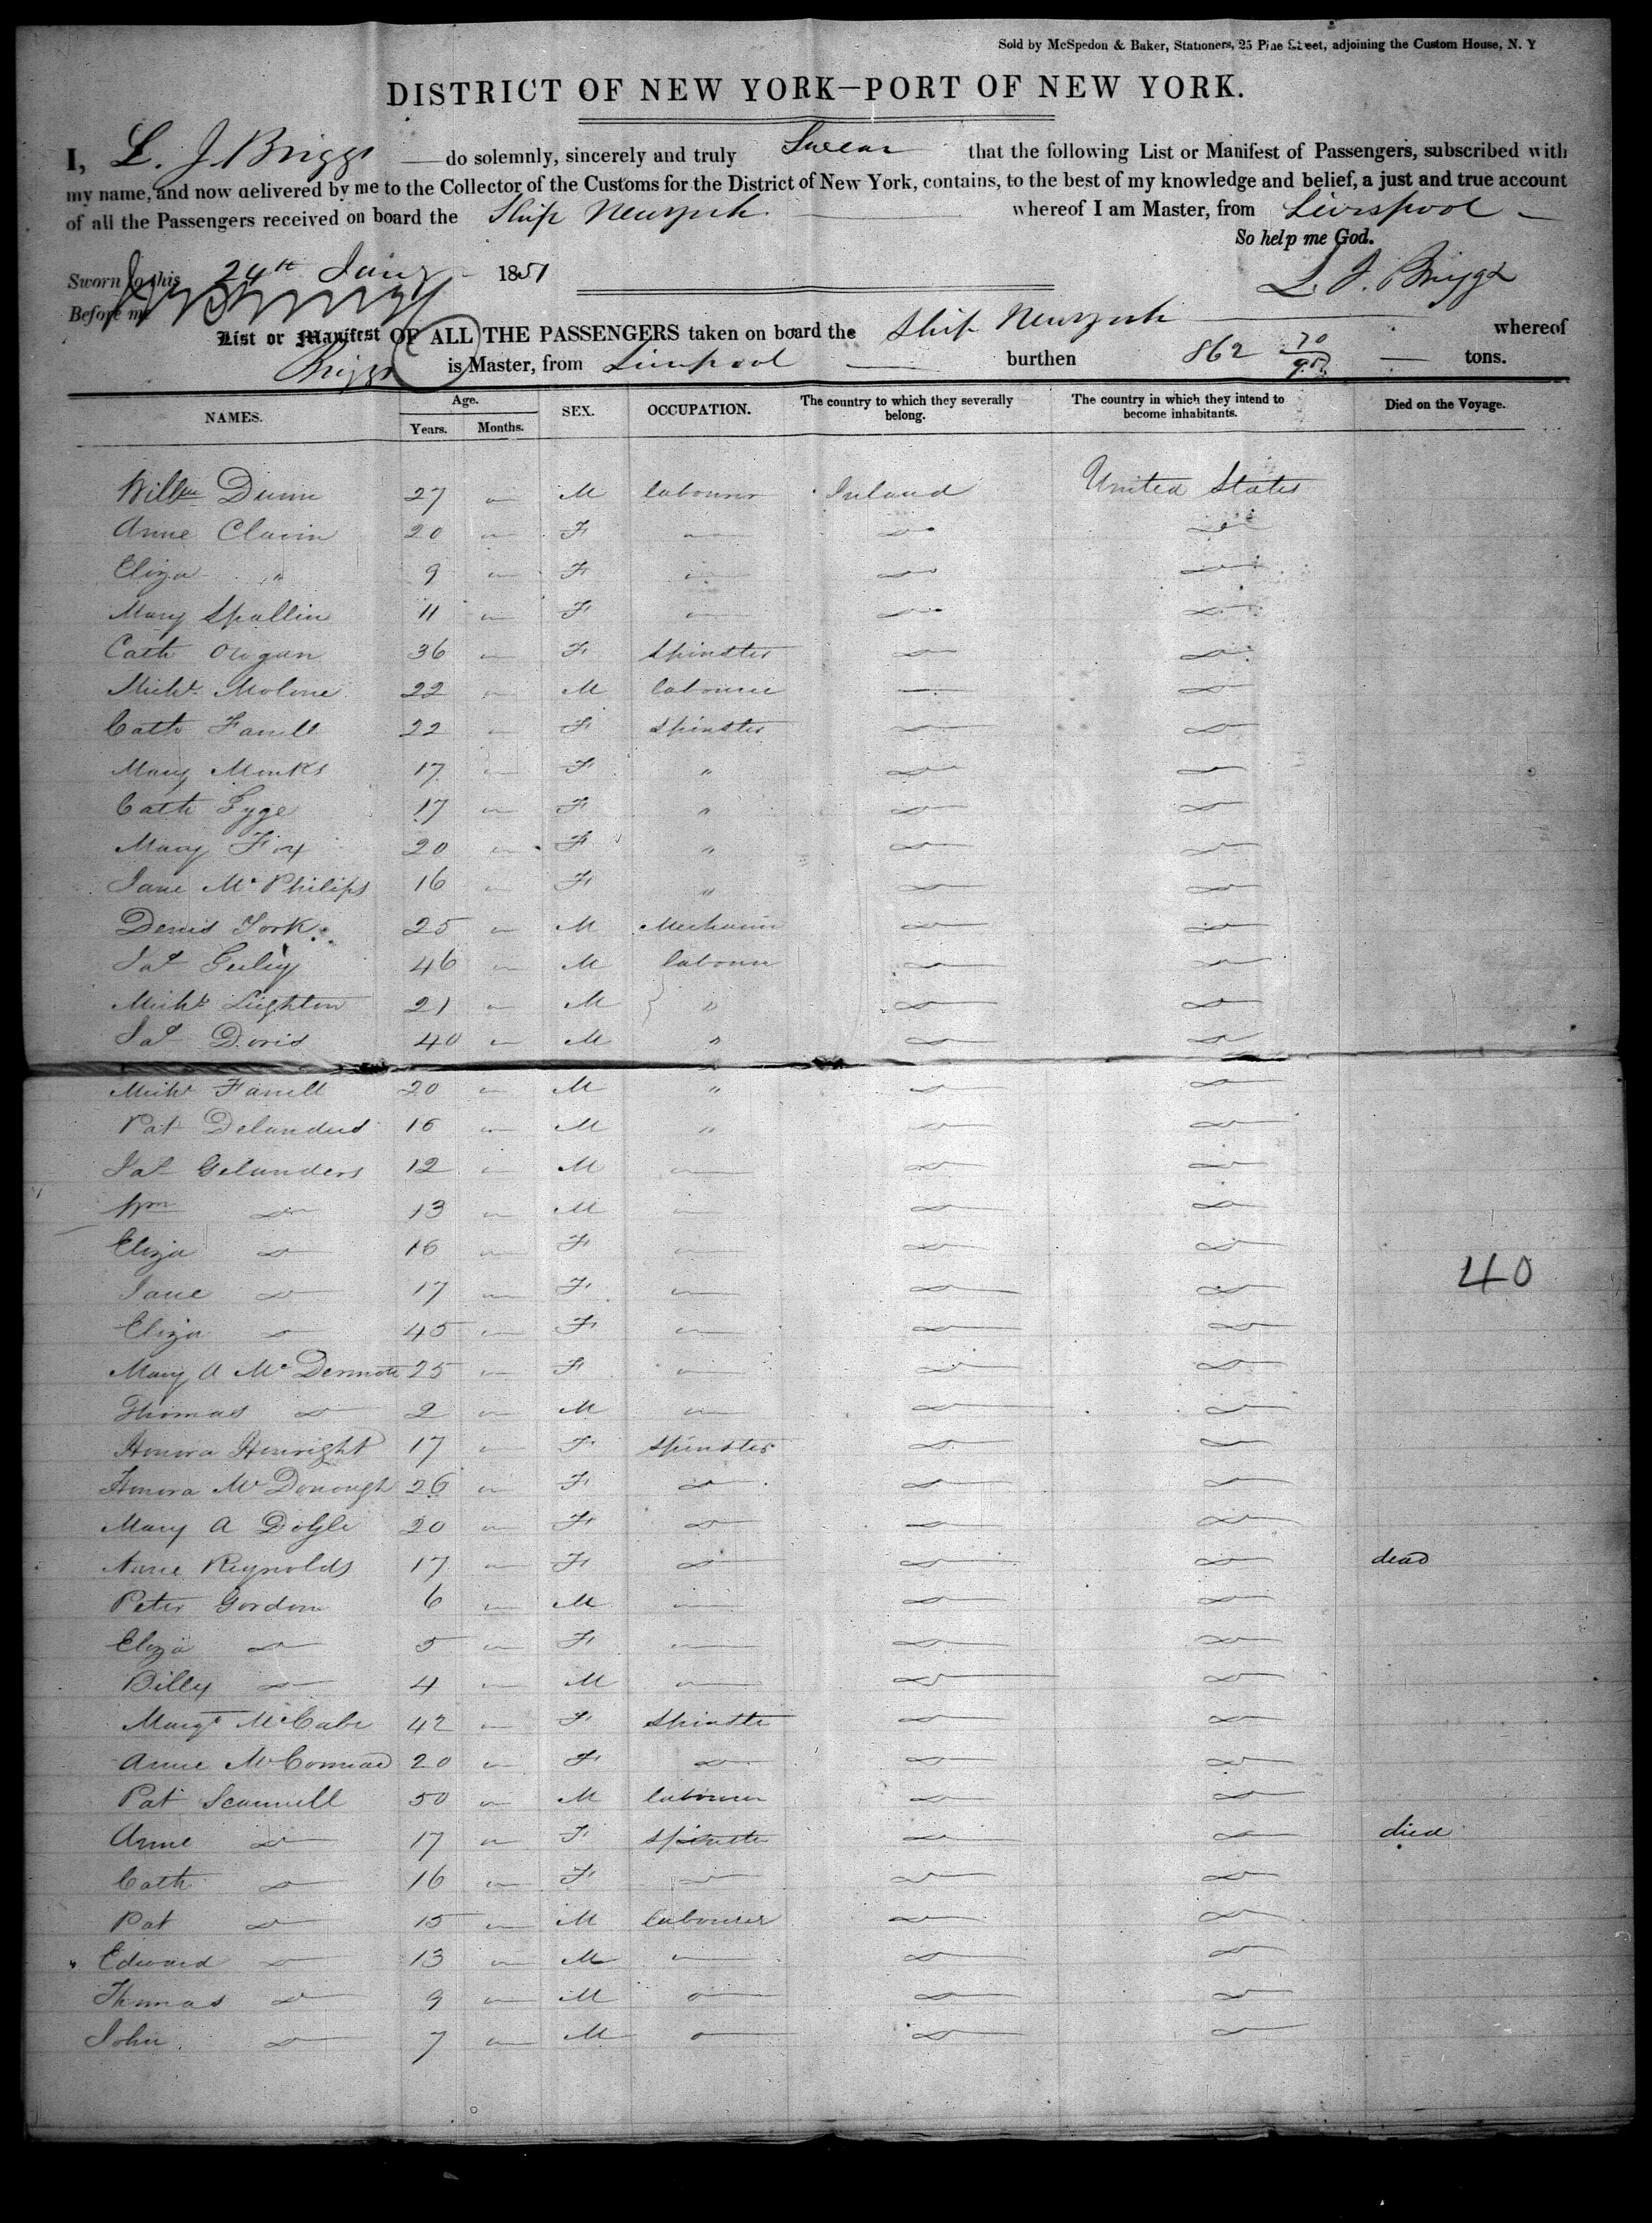 Sold by McSpedon & Baker, Stationers, 25 Pine Street, adjoining the Custom House, N. Y
DISTRICT OF NEW YORK—PORT OF NEW YORK.
I, L. J. Briggs — do solemnly, sincerely and truly Swear that the following List or Manifest of Passengers, subscribed with
my name, and now delivered by me to the Collector of the Customs for the District of New York, contains, to the best of my knowledge and belief, a just and true account
of all the Passengers received on board the Ship Newyork — whereof I am Master, from Liverpool —
So help me God.
Sworn to this 24th Jany 1851
L. J. Briggs
Before me
List or Manifest OF ALL THE PASSENGERS taken on board the Ship Newyork — whereof
Briggs is Master, from Liverpool — burthen 862 70/95 — tons.
NAMES. Age. Years. Months. SEX. OCCUPATION. The country to which they severally belong. The country in which they intend to become inhabitants. Died on the Voyage.
Willm Dunn 27 M labourer Ireland United States
Anne Clavin 20 F
Eliza " 9 F
Mary Spallin 11 F
Cath 36 F Spinster
Michl. Molone 22 M labourer
Cath Farrell 22 F Spinster
Mary Monks 17 F "
Cath Tyge 17 F "
Mary Fox 20 F "
Jane Mc Philips 16 F "
Denis York 25 M Mechanic
Jas 46 M labourer
Michl Leighton 21 M "
Jas Doris 40 M "
Michl Farrell 20 M "
Pat 16 M "
Jas Gelanders 12 M
Wm do 13 M
Eliza do 16 F
Jane do 17 F
40
Eliza do 45 F
Mary A Mc Dermott 25 F
Thomas do 2 M
Honora Henright 17 F Spinster
Honora Mc Donough 26 F do
Mary A Doyle 20 F do
Anne Reynolds 17 F do dead
Peter Gordon 6 M
Eliza do 5 F
Billy do 4 M
Margt McCabe 42 F Spinster
Anne 20 F do
Pat Scannell 50 M labourer
Anne do 17 F Spinster died
Cath do 16 F do
Pat do 15 M labourer
Edward do 13 M
Thomas do 9 M
John do 7 M